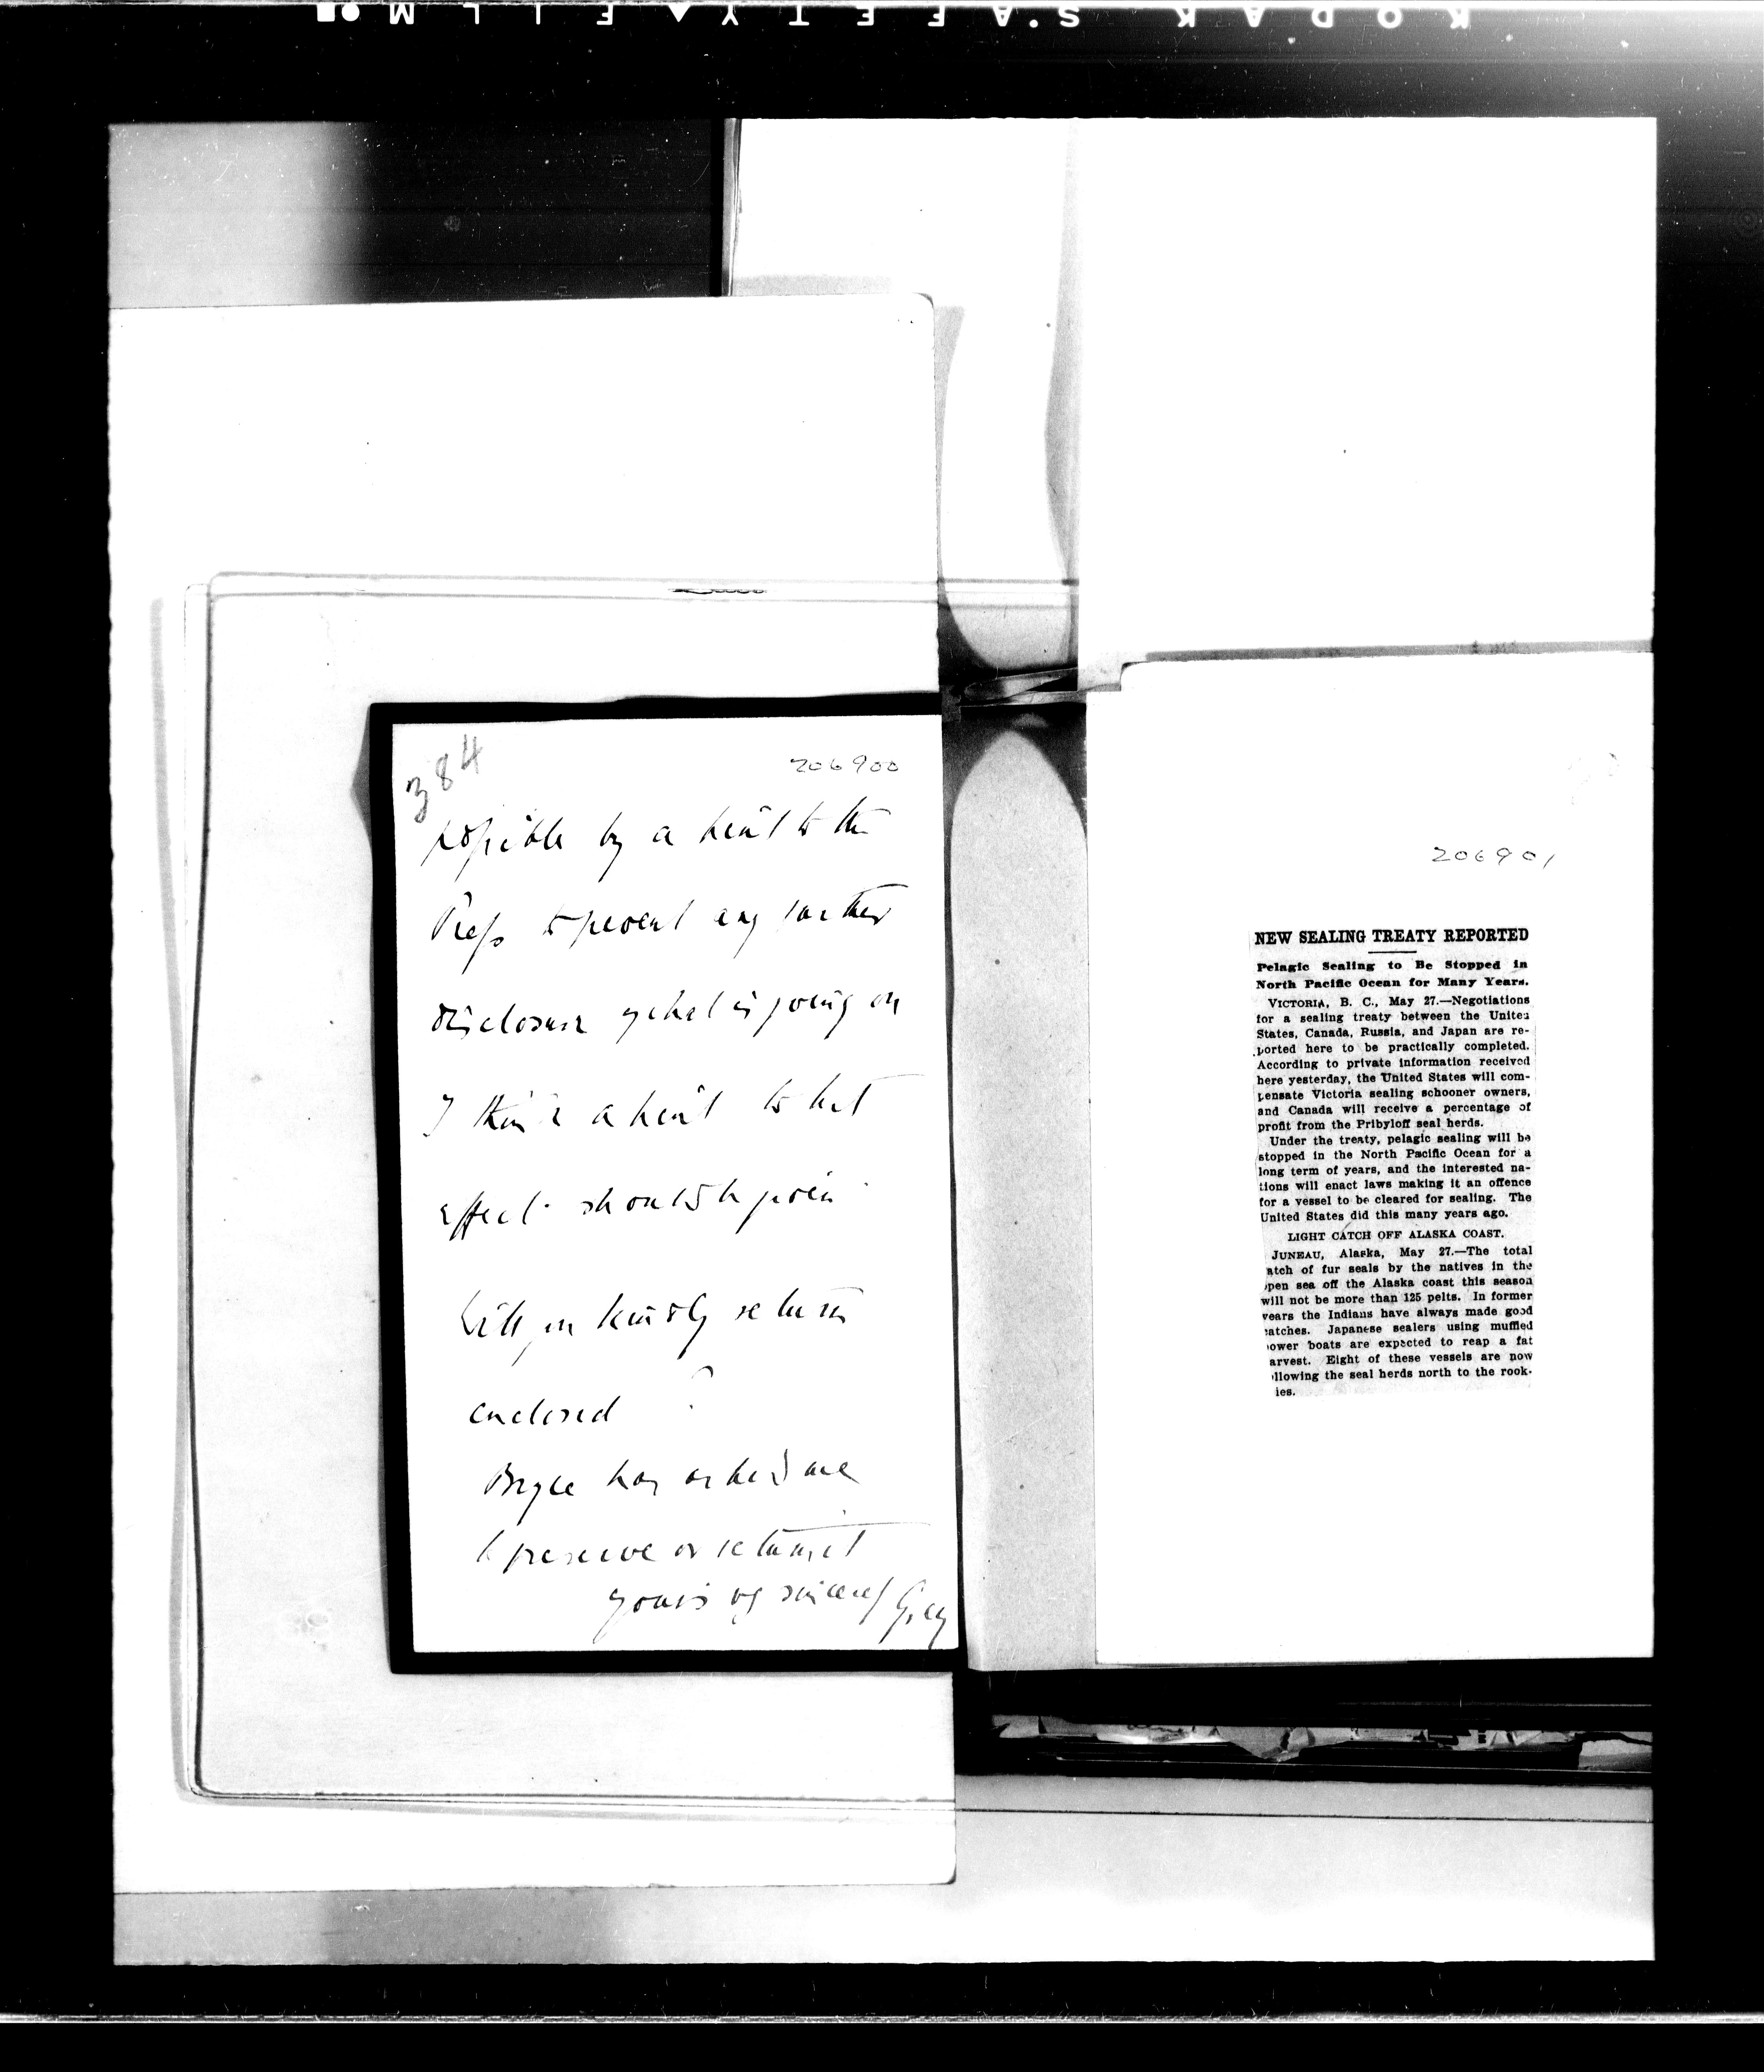 KODAK SAFETY FILM
384
206900
possible by a hint to the
Press to prevent any further
disclosure of what is going on
I think a hint to that
effect should be given
Will you kindly return
enclosed ?
Bryce has asked me
to preserve or return it
yours vy sincerely Grey
206901
NEW SEALING TREATY REPORTED
Pelagic Sealing to Be Stopped in
North Pacific Ocean for Many Years.
VICTORIA, B. C., May 27.—Negotiations
for a sealing treaty between the United
States, Canada, Russia, and Japan are re-
ported here to be practically completed.
According to private information received
here yesterday, the United States will com-
pensate Victoria sealing schooner owners,
and Canada will receive a percentage of
profit from the Pribyloff seal herds.
Under the treaty, pelagic sealing will be
stopped in the North Pacific Ocean for a
long term of years, and the interested na-
tions will enact laws making it an offence
for a vessel to be cleared for sealing. The
United States did this many years ago.
LIGHT CATCH OFF ALASKA COAST.
JUNEAU, Alaska, May 27.—The total
atch of fur seals by the natives in the
pen sea off the Alaska coast this season
will not be more than 125 pelts. In former
years the Indians have always made good
catches. Japanese sealers using muffled
ower boats are expected to reap a fat
arvest. Eight of these vessels are now
llowing the seal herds north to the rook-
ies.